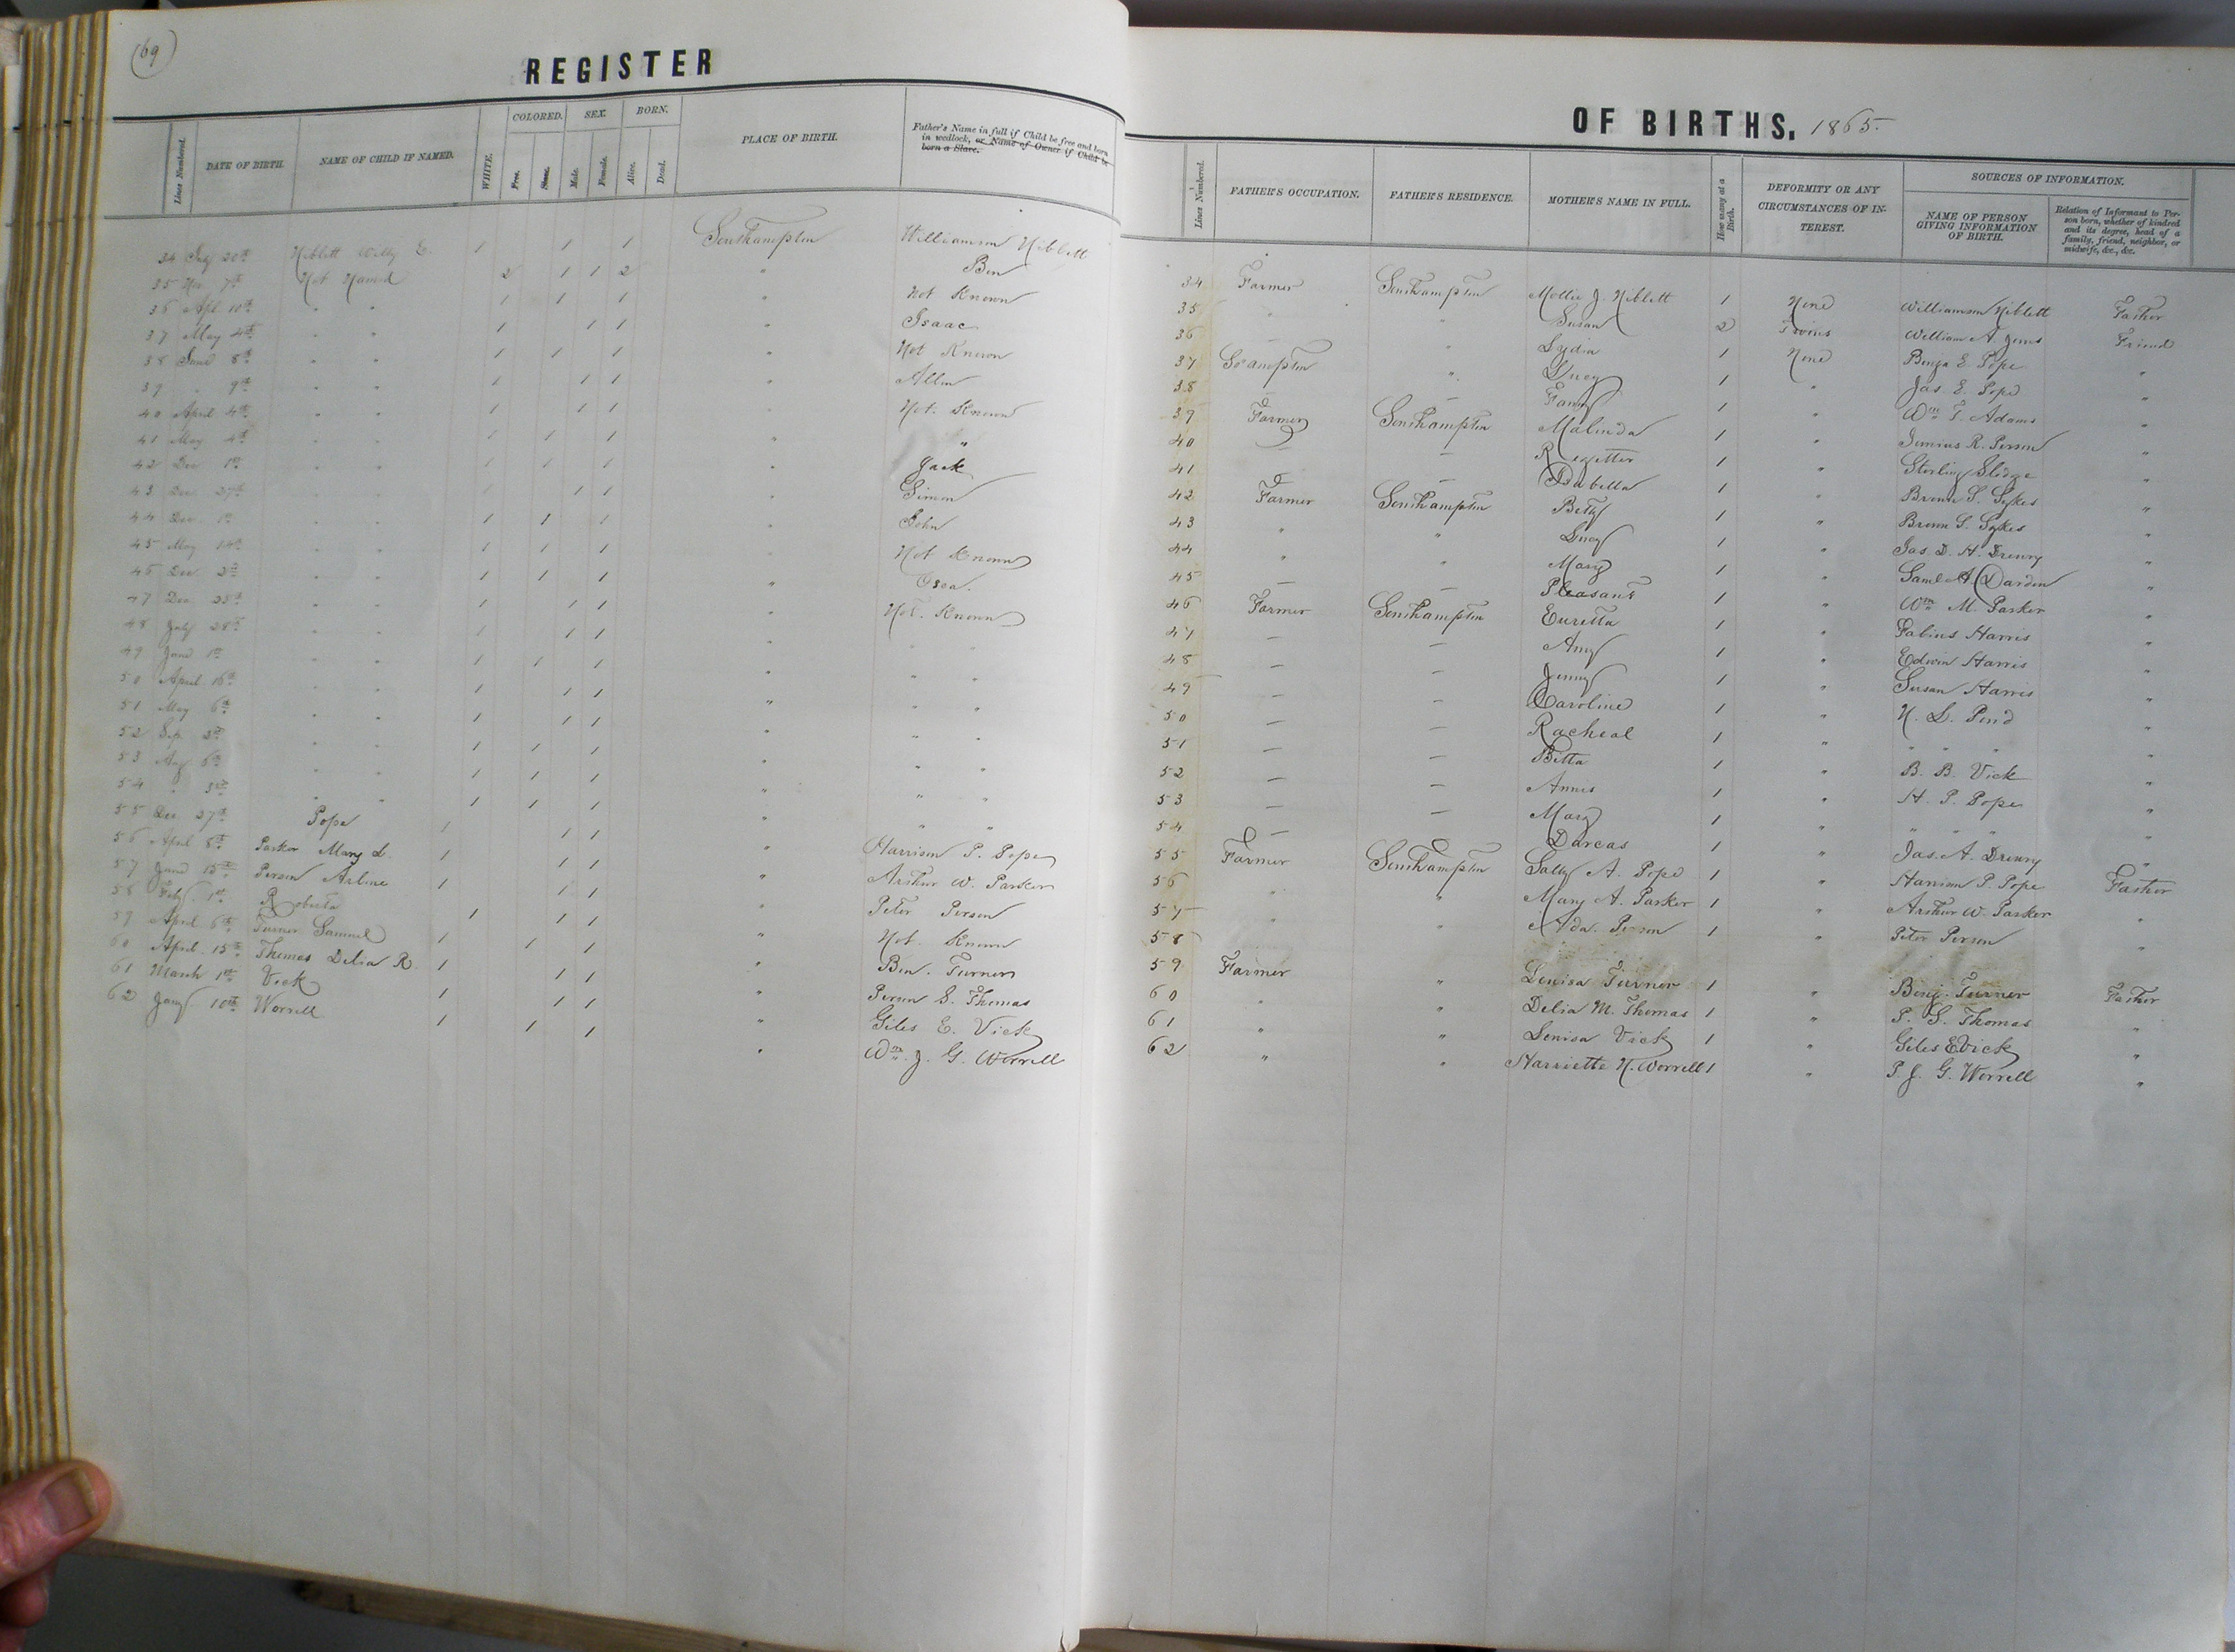 (69)
REGISTER
Lines Numbered. DATE OF BIRTH. NAME OF CHILD IF NAMED. WHITE. COLORED. Free. Slave. SEX. Male. Female. BORN. Alive. Dead. PLACE OF BIRTH. Father's Name in full if Child be free and born in wedlock, or Name of Owner if Child be born a Slave.
34 July 20th Niblett Willy E. 1 1 1 Southampton Williamson Niblett
35 Nov 7th Not Named 2 1 1 2 " Ben
36 Apl 10th " " 1 1 1 " Not Known
37 May 4th " " 1 1 1 " Isaac
38 June 8th " " 1 1 1 " Not Known
39 " 9th " " 1 1 1 " Allen
40 April 4th " " 1 1 1 " Not Known
41 May 4th " " 1 1 1 " "
42 Dec 1st " " 1 1 1 " Jack
43 Dec 27th " " 1 1 1 " Simon
44 Dec 1st " " 1 1 1 " John
45 May 14th " " 1 1 1 " Not Known
46 Dec " " 1 1 1 " Osea.
47 Dec 25th " " 1 1 1 " Not Known
48 July 28th " " 1 1 1 " " "
49 June 1st " " 1 1 1 " " "
50 April 16th " " 1 1 1 " " "
51 May 6th " " 1 1 1 " " "
52 Sep 3rd " " 1 1 1 " " "
53 Aug 6th " " 1 1 1 " " "
54 " 3rd " " 1 1 1 " " "
55 Dec 27th Pope 1 1 1 " Harrison P. Pope
56 April 8th Parker Mary L. 1 1 1 " Arthur W. Parker
57 June 15th Person Arline 1 1 1 " Peter Person
58 Feby 1st Roberta 1 1 1 " Not Known
59 April 6th Turner Samuel 1 1 1 " Ben. Turner
60 April 15th Thomas Delia R. 1 1 1 " Person S. Thomas
61 March 1st Vick 1 1 1 " Giles E. Vick
62 Jany 10th Worrell 1 1 1 " Wm. J. G. Worrell
OF BIRTHS, 1865.
Lines Numbered. FATHER'S OCCUPATION. FATHER'S RESIDENCE. MOTHER'S NAME IN FULL. How many at a Birth. DEFORMITY OR ANY CIRCUMSTANCES OF INTEREST. SOURCES OF INFORMATION. NAME OF PERSON GIVING INFORMATION OF BIRTH. Relation of Informant to Person born, whether of kindred and its degree, head of a family, friend, neighbor, or midwife, &c., &c.
34 Farmer Southampton Mollie J. Niblett 1 None Williamson Niblett Father
35 " " Susan 2 Twins William A. Jones Friend
36 " Lydia 1 None Benja E. Pope "
37 Soampton " Lucy 1 " Jas. E. Pope "
38 — — Fanny 1 " Wm T. Adams "
39 Farmer Southampton Malinda 1 " Junius R. Person "
40 — — 1 " Sterling Sledge "
41 — — Isabella 1 " Brown S. Sykes "
42 Farmer Southampton Betty 1 " Brown S. Sykes "
43 " " Lucy 1 " Jas. D. H. Drewry "
44 " " Mary 1 " Saml A. Darden "
45 — — Pleasant 1 " Wm M. Parker "
46 Farmer Southampton Euretta 1 " Fabius Harris "
47 — — Amy 1 " Edwin Harris "
48 — — Jenny 1 " Susan Harris "
49 — — Caroline 1 " N. L. Pond "
50 — — Racheal 1 " " " "
51 — — Bitta 1 " B. B. Vick "
52 — — Annis 1 " H. P. Pope "
53 — — Mary 1 " " " " "
54 — — Darcas 1 " Jas. A. Drewry "
55 Farmer Southampton Sally A. Pope 1 " Harrison P. Pope Father
56 " " Mary A. Parker 1 " Arthur W. Parker "
57 " " Ada Person 1 " Peter Person "
58
59 Farmer " Louisa Turner 1 " Benj. Turner Father
60 " " Delia M. Thomas 1 " P. S. Thomas "
61 " " Louisa Vick 1 " Giles E Vick "
62 " " Harriette N. Worrell 1 " P. J. G. Worrell "